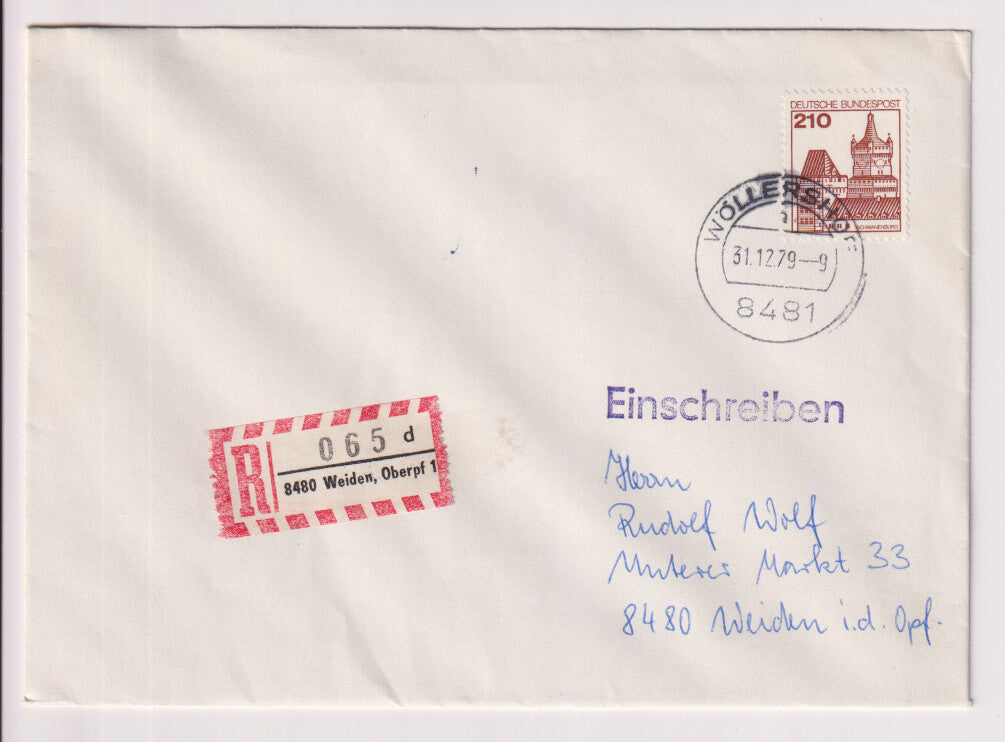 DEUTSCHE BUNDESPOST
210
SCHWANENBURG
WÖLLERSHOF
31.12.79--9
8481
Einschreiben
R
065 d
8480 Weiden, Oberpf 1
Herrn
Rudolf Wolf
Unterer Markt 33
8480 Weiden i.d. Opf.